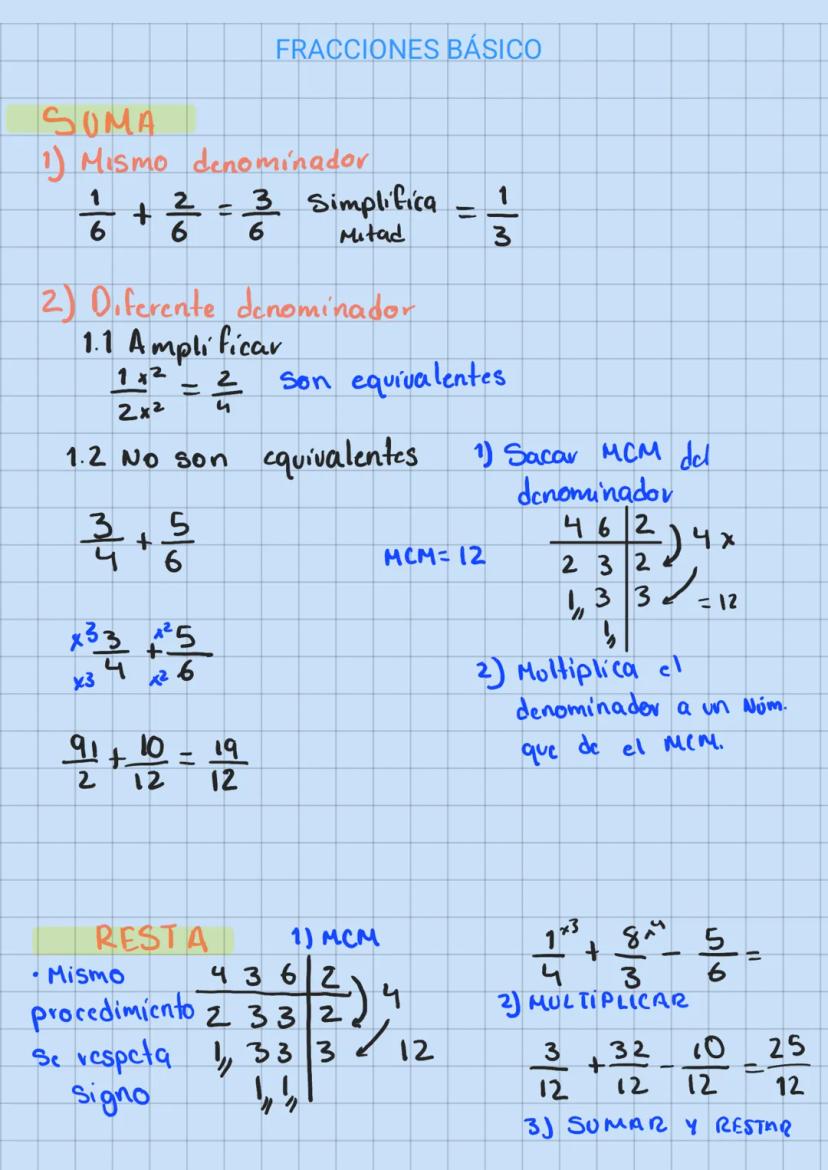 FRACCIONES BÁSICO
SUMA
1) Mismo denominador
1/6 + 2/6 = 3/6 Simplifica Mitad = 1/3
2) Diferente denominador
1.1 Amplificar
1x2/2x2 = 2/4 son equivalentes
1.2 No son equivalentes
3/4 + 5/6
MCM= 12
x3 3/x3 4 + x2 5/x2 6
91/2 + 10/12 = 19/12
1) Sacar MCM del
denominador
4 6 | 2
2 3 | 2 4 x
1,, 3 | 3 = 12
1,,
2) Multiplica el
denominador a un Núm.
que de el MCM.
RESTA
• Mismo
procedimiento
se respeta
signo
1) MCM
4 3 6 | 2
2 3 3 | 2 4
1,, 3 3 | 3 12
1,, 1,,
1x3/4 + 8x4/3 - 5/6 =
2) MULTIPLICAR
3/12 + 32/12 - 10/12 = 25/12
3) SUMAR Y RESTAR